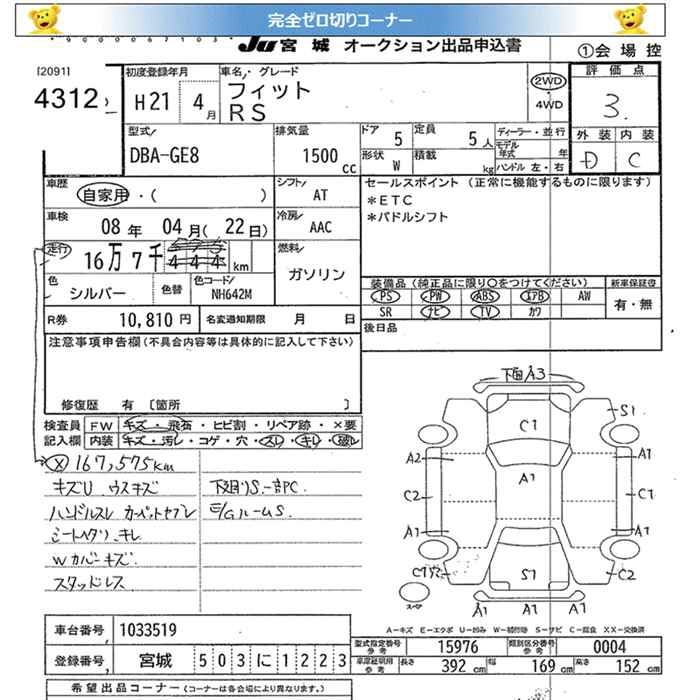 完全ゼロ切りコーナー
0000067103
JU 宮城 オークション出品申込書
①会場控
[2091]
4312
初度登録年月
H21 4月
車名・グレード
フィット
RS
2WD
・
4WD
評価点
3.
外装 内装
D C
型式
DBA-GE8
排気量
1500 cc
ドア 5
定員 5人
形状 W
積載 kg
ディーラー・並行
モデル年式 年
ハンドル 左・右
車歴
自家用・( )
シフト
AT
セールスポイント (正常に機能するものに限ります)
*ETC
*パドルシフト
車検
08年 04月(22日)
冷房
AAC
走行
16万7千444km
燃料
ガソリン
色
シルバー
色替
色コード
NH642M
装備品 (純正品に限り○をつけてください)
新車保証書
PS PW ABS エアB AW
SR ナビ TV カワ
有・無
R券 10,810円
名変通知期限 月 日
後日品
注意事項申告欄(不具合内容等は具体的に記入して下さい)
修復歴 有 〔箇所
検査員記入欄
FW キズ・飛石・ヒビ割・リペア跡・×要
内装 キズ・汚レ・コゲ・穴・スレ・キレ・破レ
Ⓧ 167,575km
キズU ウスキズ
ハンドルスレ カーペットセブレ
シートヘタリ・キレ
Wカバーキズ
スタッドレス
下廻りS-部PC
E/Gルーム S
下面A3
C1
S1
A2
A1
A1
C2
C1
A1
A1
S1
C2
スペア
A1 A1 A1
A-キズ E-エクボ U-凹み W-補修跡 S-サビ C-腐食 XX-交換済
車台番号 1033519
登録番号 宮城 503に1223
型式指定番号 参考 15976
類別区分番号 参考 0004
車庫証明用 参考
長さ 392cm
幅 169cm
高さ 152cm
希望出品コーナー (コーナーは各会場により異なります。)